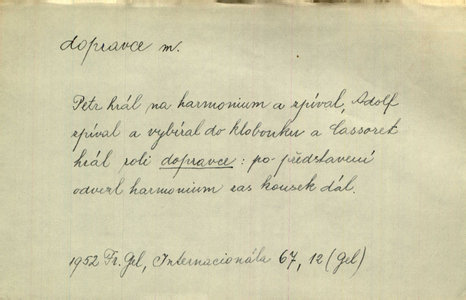 dopravce m.
Petr hrál na harmonium a zpíval, Adolf
zpíval a vybíral do klobouku a Cassoret
hrál roli dopravce: po představení
odvezl harmonium zas kousek dál.
1952 Fr. Gel, Internacionála 67, 12 (Gel)